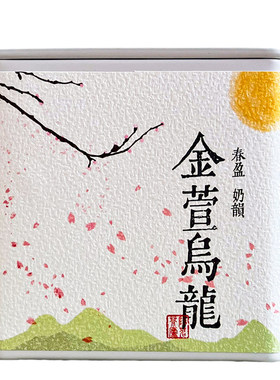 春盈 奶韻
金萱烏龍